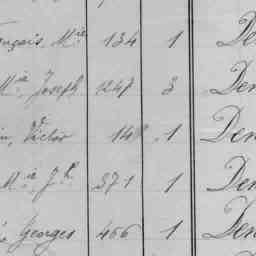 nçois, Mie 134 1 De
Mie Joseph 1247 3 Den
Victor 148 1 Den
Mie Jh 371 1 Den
Georges 466 1 Den